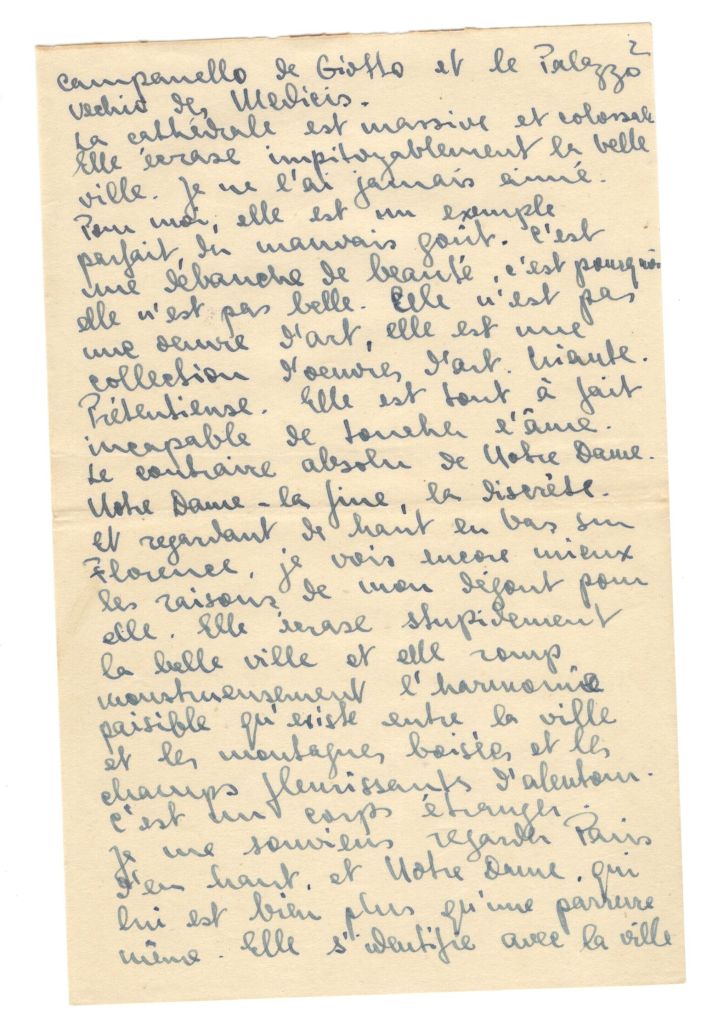 2
campanello de Giotto et le Palazzo
vechio des Medicis.
La cathédrale est massive et colossale
Elle écrase impitoyablement la belle
ville. Je ne l'ai jamais aimé.
Pour moi, elle est un exemple
parfait du mauvais goût. C'est
une débauche de beauté, c'est pourquoi
elle n'est pas belle. Elle n'est pas
une oeuvre d'art, elle est une
collection d'oeuvres d'art. Criante.
Prétentieuse. Elle est tout à fait
incapable de toucher l'âme.
Le contraire absolu de Notre Dame.
Notre Dame - la fine, la discrète.
Et regardant de haut en bas sur
Florence, je vois encore mieux
les raisons de mon dégout pour
elle. Elle écrase stupidement
la belle ville et elle romp
monstrueusement l'harmonie
paisible qu'existe entre la ville
et les montagnes boisées et les
champs fleurissants d'alentour.
C'est un corps étranger.
Je me souviens regarder Paris
d'en haut, et Notre Dame, qui
lui est bien plus qu'une parrure
même. Elle s'identifie avec la ville